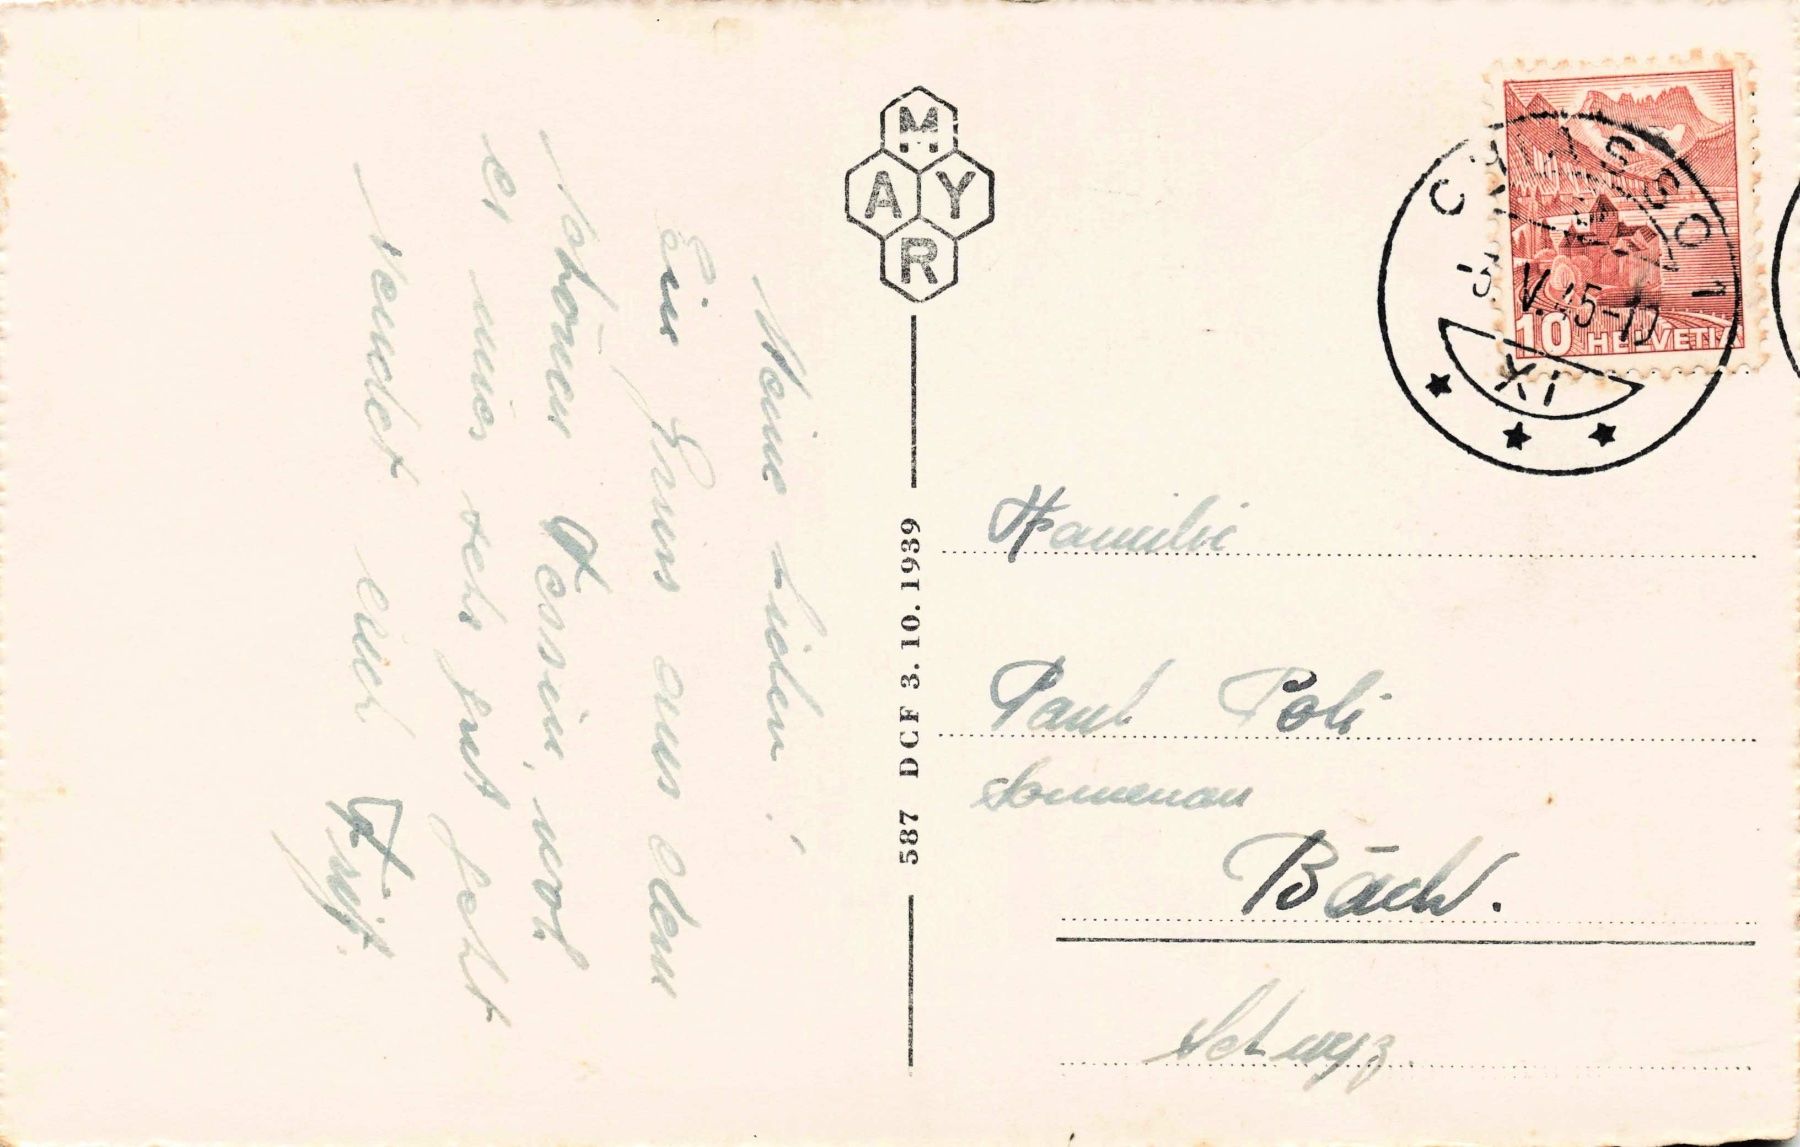 Meine Lieben!
Ein Gruss aus dem
schönen Tessin, wod
es mies sehr gut geht
sendet euch
MAYR
587 DCF 3. 10. 1939
CHIASSO 1
V.45-12
XI
10 HELVETIA
Familie
Paul Poli
Sonnenau
Bäch.
Schwyz.